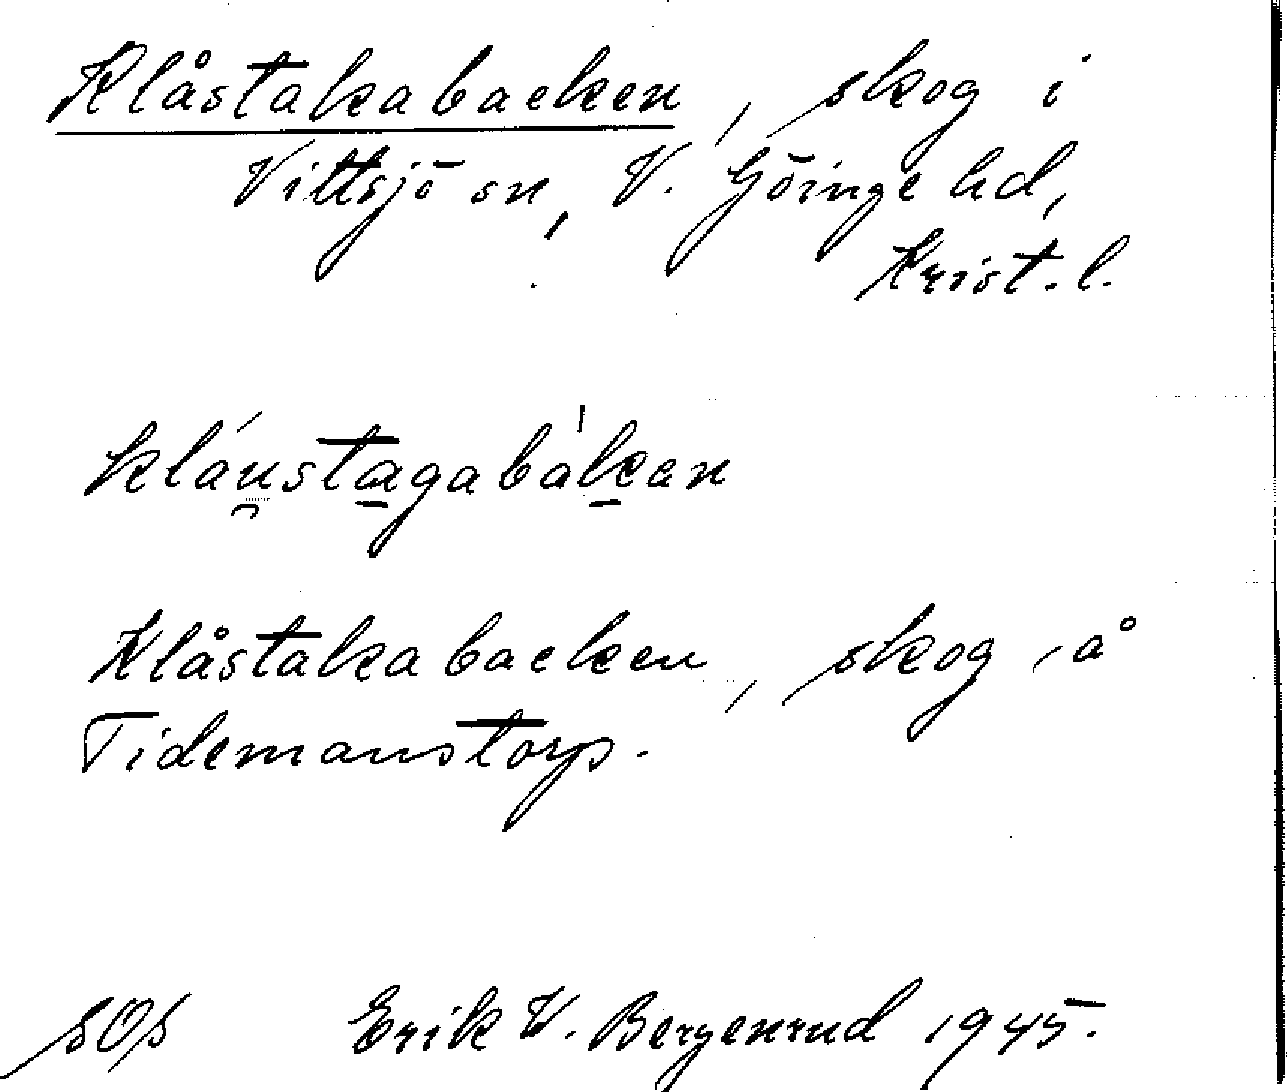 Klåstakabacken, skog i
Vittsjö sn, V. Göinge hd,
Krist. l.
kláustagabàken
Klåstakabacken, skog å
Tidemanstorp.
Erik W. Bergenrud 1945.